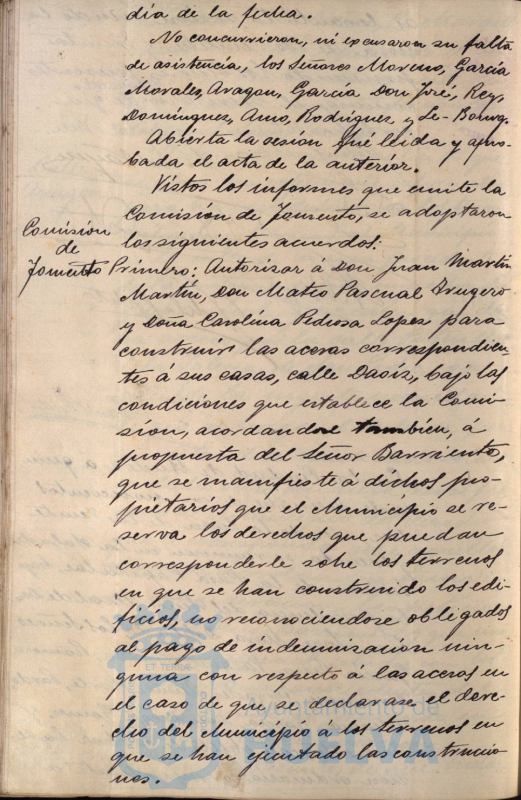 día de la fecha.
No concurrieron, ni excusaron su falta
de asistencia, los Señores Moreno, García
Morales, Aragon, García Don José, Rey,
Domínguez, Amo, Rodríguez y Le-Bourg.
Abierta la sesión fué leida y apro-
bada el acta de la anterior.
Vistos los informes que emite la
Comisión de Fomento, se adoptaron
los siguientes acuerdos:
Comisión
de
Fomento
Primero: Autorizar á Don Juan Martín
Martín, Don Mateo Pascual
y Doña Carolina Pedrosa Lopez para
construir las aceras correspondien-
tes á sus casas, calle Daoíz, bajo las
condiciones que establece la Comi-
sión, acordandose tambien, á
propuesta del Señor Barriento,
que se manifieste á dichos pro-
pietarios que el Municipio se re-
serva los derechos que puedan
corresponderle sobre los terrenos
en que se han construido los edi-
ficios, no reconociendose obligados
al pago de indemnización nin-
guna con respecto á las aceras en
el caso de que se declarase el dere-
cho del Municipio á los terrenos en
que se han ejecutado las construccio-
nes.
ET TERRAE
Ayuntamiento de